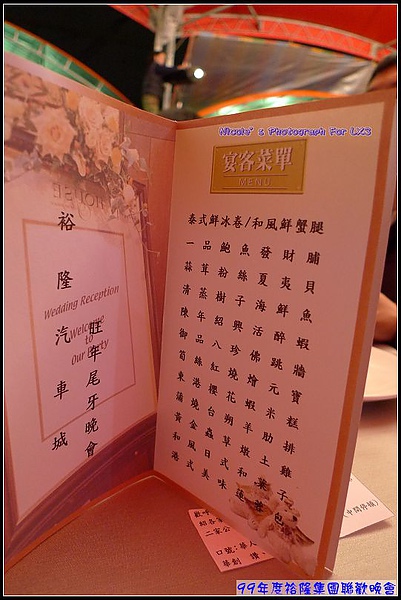 Nicole' s Photograph For LX3
裕隆汽車城
旺年尾牙晚會
Wedding Reception
Welcome
to
Our Party
宴客菜單
MENU
泰式鮮冰卷/和風鮮蟹腿
一品鮑魚發財脯
蒜茸粉絲夏夷貝
清蒸樹子海鮮魚
陳年紹興活醉蝦
御品八珍佛跳牆
筍絲紅燒燴元寶
東港櫻花蝦米糕
蒲燒台朔羊肋排
黃金蟲草燉土雞
和風日式和菓子
港式美味蓮蓉包
(中間停頓)
二家公
口號:華人
華創 讚
99年度裕隆集團聯歡晚會